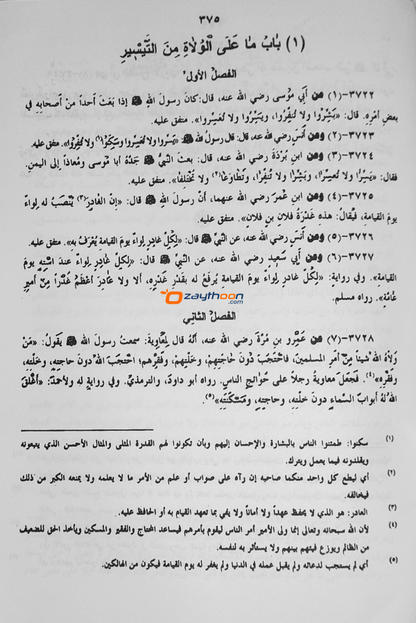 ٣٧٥
(١) بَابُ مَا عَلَى الْوُلَاةِ مِنَ التَّيْسِيرِ
الفصل الأول
٣٧٢٢-(١) عن أَبي مُوسى رضي الله عنه، قال: كانَ رسولُ الله ﷺ إِذا بَعَثَ أَحداً منْ أَصحابِهِ في
بعضِ أَمْرِهِ. قال: «بَشِّرُوا ولا تُنَفِّرُوا، ويَسِّرُوا ولا تُعَسِّروا». متفق عليه.
٣٧٢٣-(٢) وعن أنسٍ رضي الله عنه، قال: قال رسولُ الله ﷺ: «يَسِّروا ولا تُعَسِّروا وسَكِّنُوا(١) ولا تُنَفِّروا». متفق عليه.
٣٧٢٤-(٣) وعن ابن بُرْدَةَ رضي الله عنه، قال: بعثَ النبيُّ ﷺ جَدَّهُ أبا موسى ومُعاذاً إلى اليمنِ.
فقال: «يَسِّرَا ولا تُعسِّرَا، وبَشِّرَا ولا تُنَفِّرَا، وتَطَاوَعَا(٢) ولا تَخْتَلِفَا». متفق عليه.
٣٧٢٥-(٤) وعن ابنِ عُمَرَ رضي الله عنهما، أنَّ رسولَ الله ﷺ، قال: «إنَّ الغادِرَ(٣) يُنْصَبُ له لِواءٌ
يومَ القيامةِ، فيُقالُ: هذِهِ غَدْرَةُ فلانِ بنِ فلانٍ». متفق عليه.
٣٧٢٦-(٥) وعن أنسٍ رضي الله عنه، عن النبيِّ ﷺ، قال: «لِكلِّ غادرٍ لِواءٌ يومَ القيامةِ يُعْرَفُ به». متفق عليه.
٣٧٢٧-(٦) وعن أبي سعيدٍ رضي الله عنه، عن النبيِّ ﷺ، قال: «لِكلِّ غادرٍ لِواءٌ عندَ اسْتِهِ يومَ
القيامةِ». وفي رواية: «لِكلِّ غادرٍ لِواءٌ يومَ القيامةِ يُرفَعُ له بقَدْرِ غَدْرِهِ، ألا ولا غادِرَ أعظمُ غَدْراً مِنْ أميرِ
عامَّةٍ». رواه مسلم.
zaythoon.com
الفصل الثاني
٣٧٢٨-(٧) عن عَمْرِو بنِ مُرَّةَ رضي الله عنه، أنَّه قال لِمُعاويةَ: سمعتُ رسولَ الله ﷺ يقولُ: «مَنْ
وَلَّاهُ اللهُ شيئاً مِنْ أمرِ المسلمينَ، فاحْتَجَبَ دُونَ حاجَتِهِمْ، وخَلَّتِهِمْ، وفَقْرِهِم؛ احْتَجَبَ اللهُ دُونَ حاجتِهِ، وخَلَّتِهِ،
وفَقْرِهِ»(٤). فَجَعَلَ معاويةُ رجلاً على حَوائِجِ الناسِ. رواه أبو داودَ، والترمذيُّ. وفي روايةٍ له ولأحمدَ: «أَغْلَقَ
اللهُ لَهُ أبوابَ السَّماءِ دونَ خَلَّتِهِ، وحاجتِهِ، ومَسْكَنَتِهِ»(٥).
(١) سكنوا: طمئنوا الناس بالبشارة والإحسان إليهم وبأن تكونوا لهم القدوة المثلى والمثال الأحسن الذي يتبعونه
ويقلدونه فيما يعمل ويترك.
(٢) أي ليطع كل واحد منكما صاحبه إن رآه على صواب أو علم من الأمر ما لا يعلمه ولا يمنعه الكبر من ذلك
فيخالفه.
(٣) الغادر: هو الذي لا يحفظ عهداً ولا أماناً ولا يفي بما تعهد القيام به أو الحافظ عليه.
(٤) لأن الله سبحانه وتعالى إنما ولى الأمير أمر الناس ليقوم بأمرهم فيساعد المحتاج والفقير والمسكين ويأخذ الحق للضعيف
من الظالم ويوزع فيئهم بينهم ولا يستأثر به لنفسه.
(٥) أي لم يستجب لدعائه ولم يقبل عمله في الدنيا ولم يغفر له يوم القيامة فيكون من الهالكين.